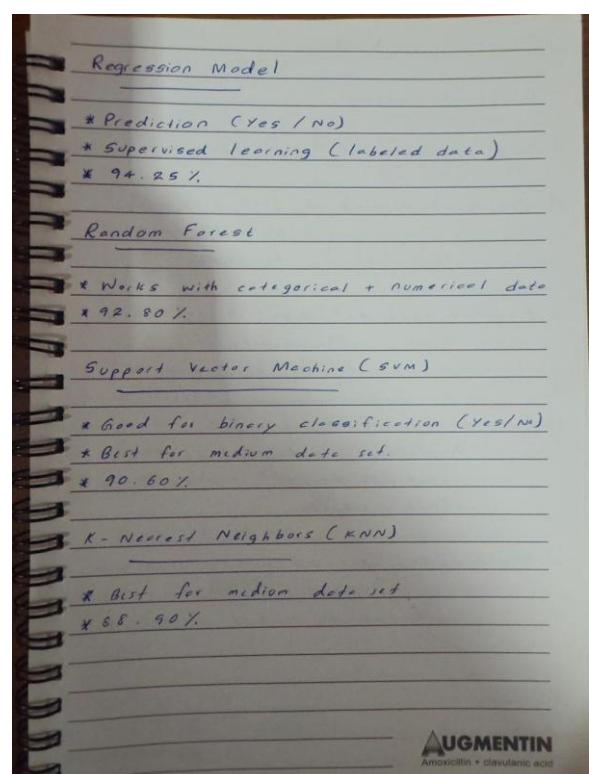 Regression Model
* Prediction (Yes / No)
* Supervised learning (labeled data)
* 94.25 %
Random Forest
* Works with categorical + numerical data
* 92.80 %
Support Vector Machine (SVM)
* Good for binary classification (Yes/No)
* Best for medium data set.
* 90.60 %
K - Nearest Neighbors (KNN)
* Best for medium data set
* 88.90 %
AUGMENTIN
Amoxicillin + clavulanic acid